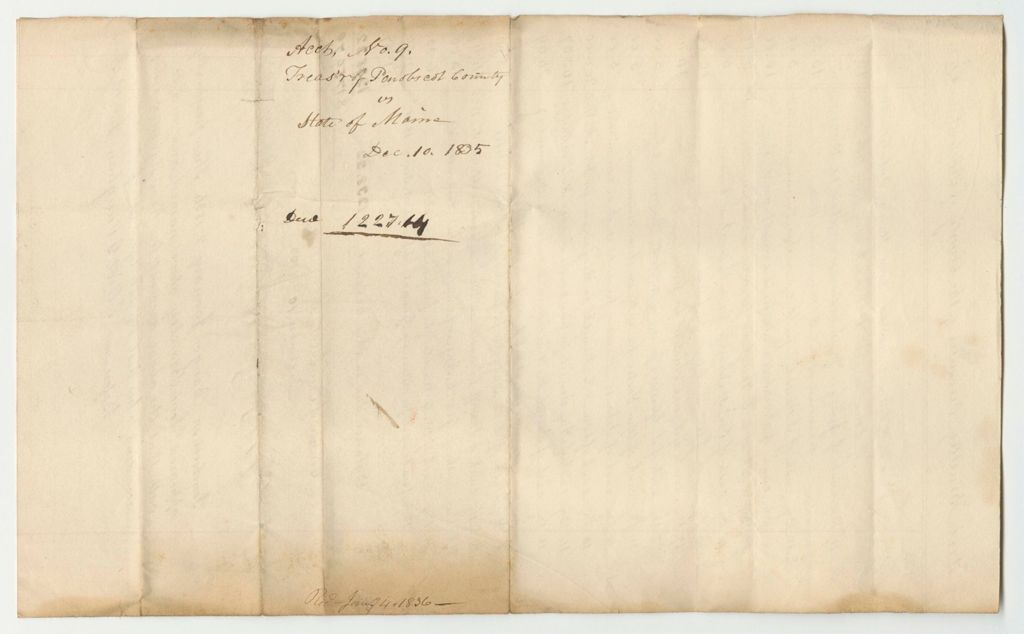 Acct. No. 9.
Treasr of Penobscot County
vs
State of Maine
Dec. 10. 1835
Due 1227.14
Recd Jany 4. 1836